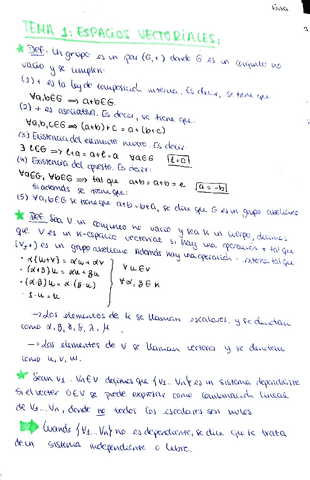 TEMA 1: ESPACIOS VECTORIALES:
Def: Un grupo es un par (G,+) donde G es un conjunto no
vacío y se cumplen:
(1) + es la ley de composición interna. Es decir, se tiene que
∀a,b∈G ⟹ a+b∈G.
(2) + es asociativa. Es decir, se tiene que
∀a,b,c∈G ⟹ (a+b)+c = a+(b+c)
(3) Existencia del elemento neutro. Es decir:
∃ e∈G ⟹ e+a = a+e = a ∀a∈G
(4) Existencia del opuesto. Es decir:
∀a∈G, ∀b∈G ⟹ tal que a+b = a+b = e a=-b
si además se tiene que:
(5) ∀a,b∈G se tiene que a+b=b+a, se dice que G es un grupo abeliano
Def: Sea V un conjunto no vacío y sea K un cuerpo, decimos
que V es un K-espacio vectorial si hay una operación + tal que
(V,+) es un grupo abeliano. Además hay una operación · externa tal que
• α(u+v) = αu+αv
• (α+β)u = αu+βu
• (α·β)u = α·(β·u)
• 1·u = u
∀u∈V
∀α,β∈K
→ Los elementos de K se llaman escalares, y se denotan
como α, β, γ, δ, λ, μ.
→ Los elementos de V se llaman vectores y se denotan
como u, v, w.
Sean v1...vn∈V decimos que {v1...vn} es un sistema dependiente
si el vector 0∈V se puede expresar como combinación lineal
de v1...vn, donde no todos los escalares son nulos.
Cuando {v1...vn} no es dependiente, se dice que se trata
de un sistema independiente o libre.